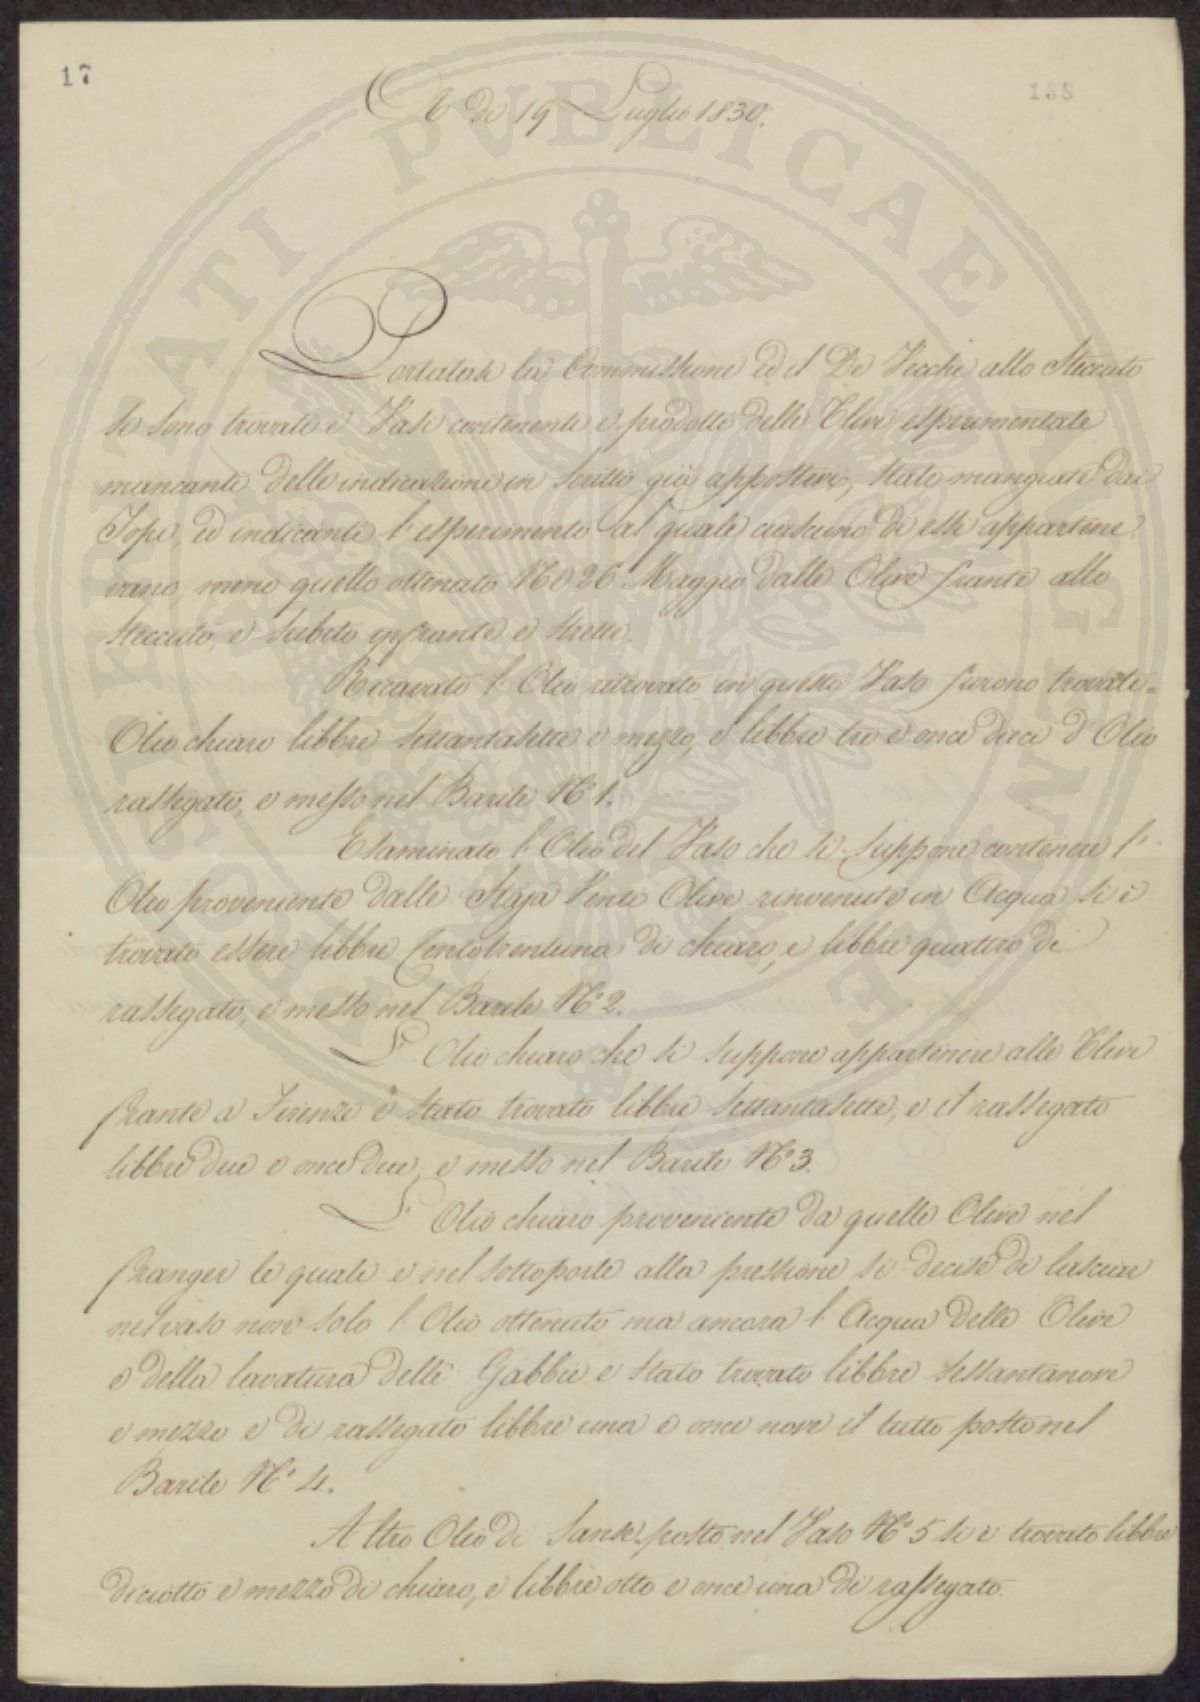 17
138
A dì 19 Luglio 1830.
Portatasi la Commissione ed il De Vecchi allo Steccuto
si sono trovati i Vasi contenenti i prodotti delle Ulive esperimentate
mancanti delle indicazioni in scritto già appostevi, state mangiate dai
Topi, ed indicanti l'esperimento al quale ciascuno di essi appartene
vano, meno quello ottenuto il dì 26 Maggio dalle Olive frante allo
Steccuto, e subito infrante e strette.
Ricavato l'Olio ritrovato in questo Vaso furono trovate
Olio chiaro libbre settantasette e mezzo, e libbre tre e once dieci d'Olio
rassegato, e messo nel Barile N.° 1.
Esaminato l'Olio del Vaso che si suppone contenere l'
Olio proveniente dalle Staja Venti Olive rinvenute in Acqua si è
trovato essere libbre Centotrentuna di chiaro, e libbre quattro di
rassegato, e messo nel Barile N.° 2.
L'Olio chiaro che si suppone appartenere alle Ulive
frante a Firenze è stato trovato libbre settantasette, e il rassegato
libbre due e once due, e messo nel Barile N.° 3.
L'Olio chiaro proveniente da quelle Olive nel
franger le quali e nel sottoporle alla pressione si decise di lasciar
nel vaso non solo l'Olio ottenuto ma ancora l'Acqua delle Olive
e della lavatura delle Gabbie è stato trovato libbre sessantanove
e mezzo e di rassegato libbre una e once nove il tutto posto nel
Barile N.° 4.
Altro Olio di Sanse posto nel Vaso N.° 5 si è trovato libbre
diciotto e mezzo di chiaro, e libbre otto e once una di rassegato.
PUBLICAE